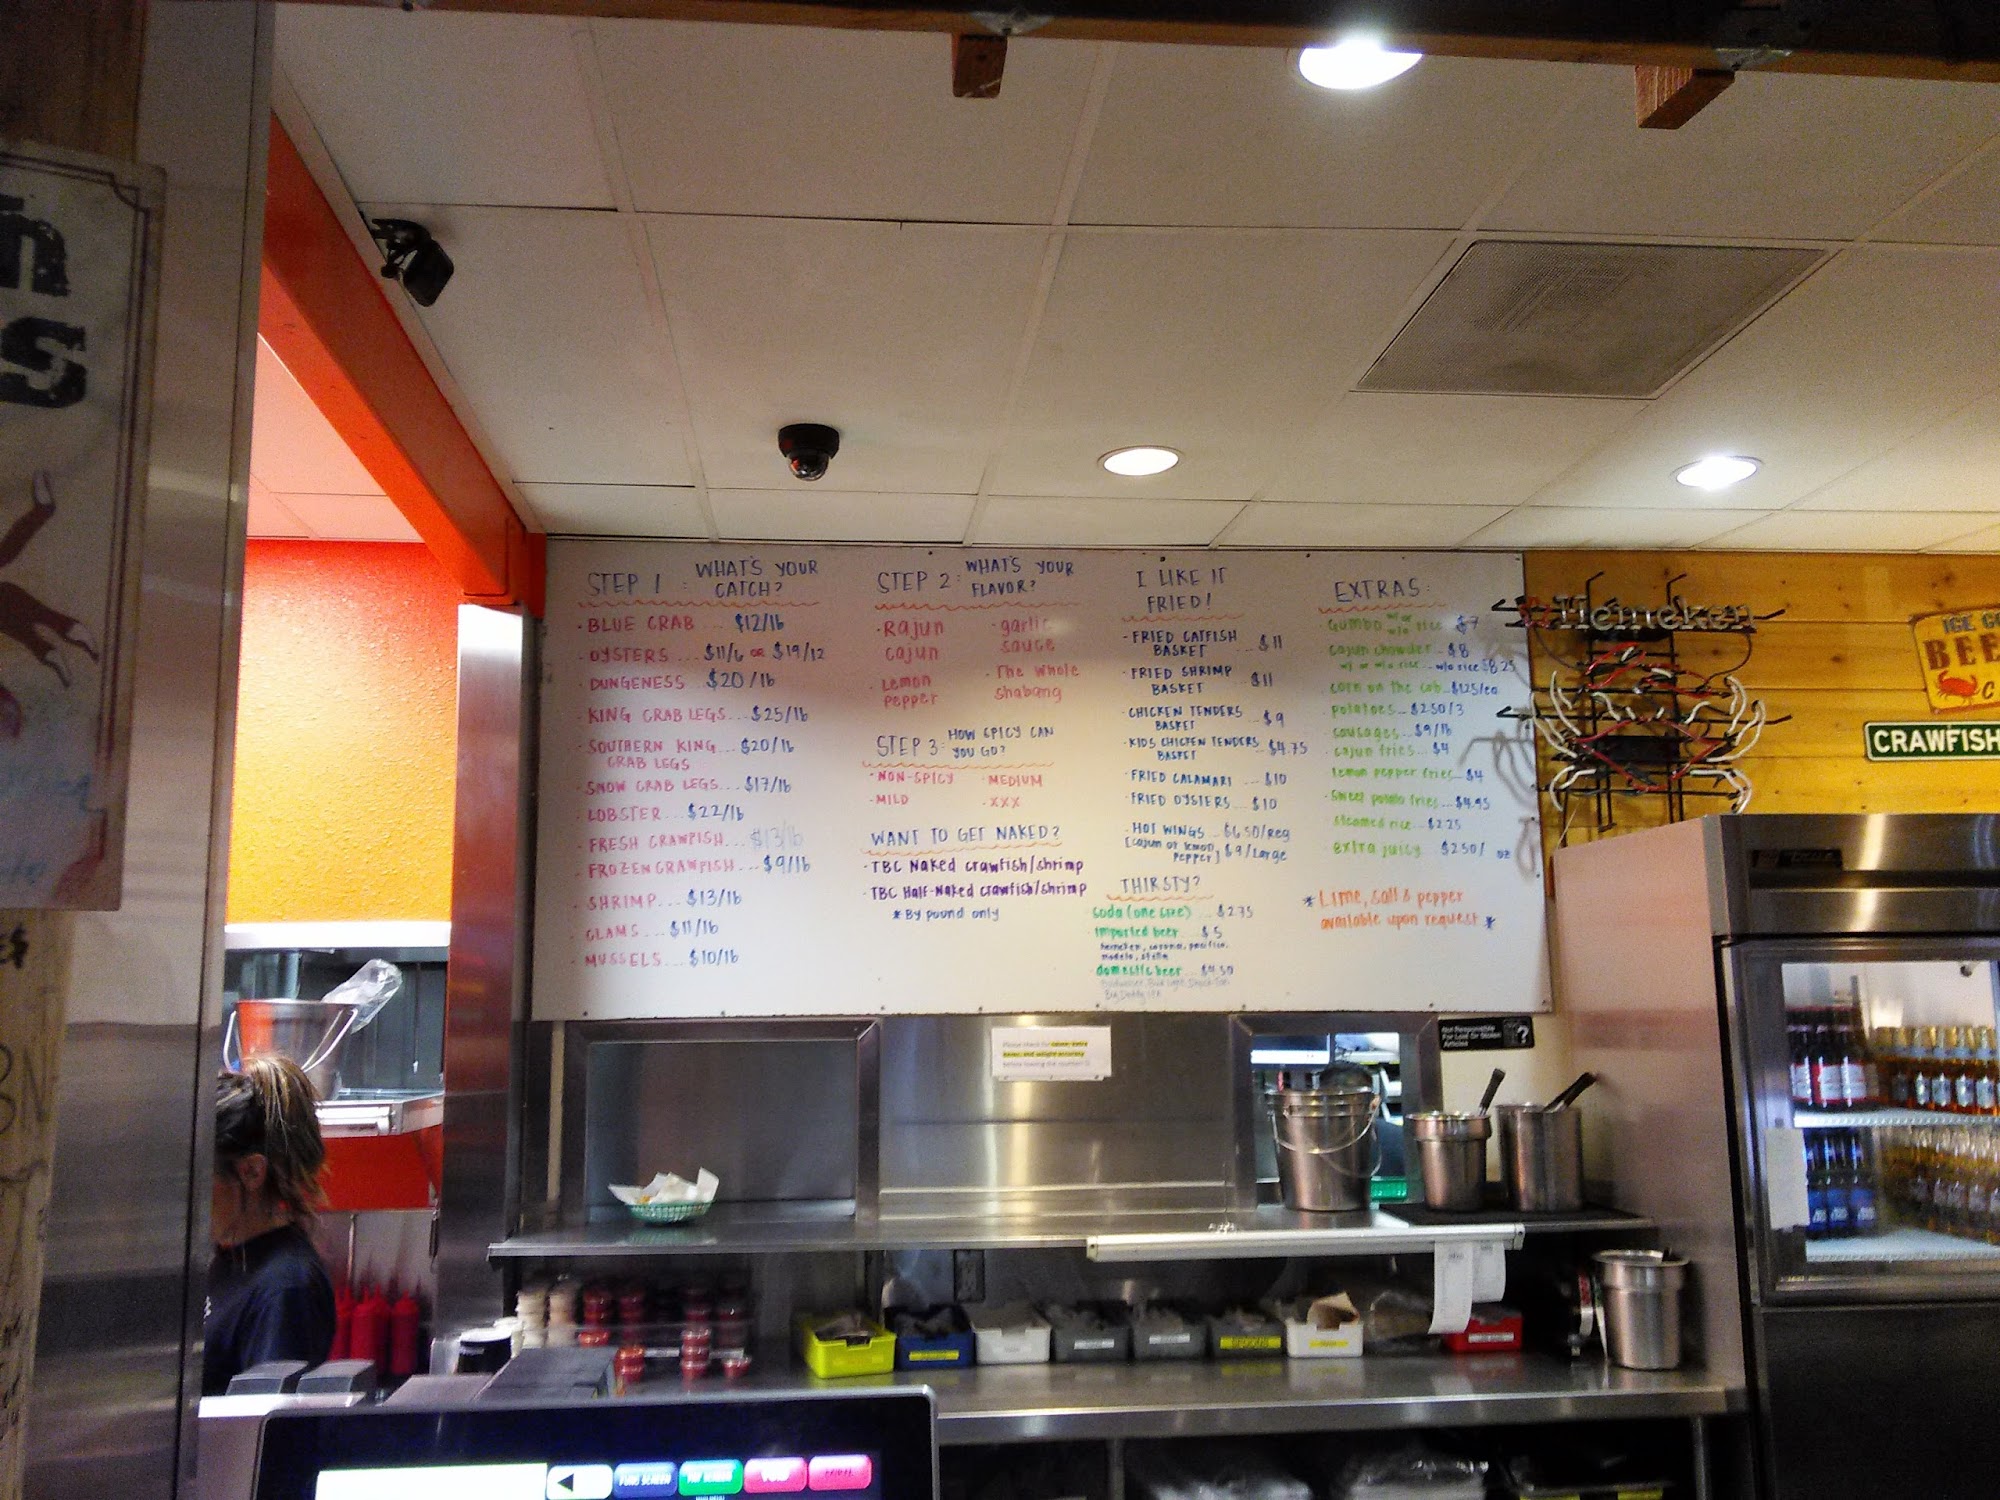 STEP 1: WHAT'S YOUR CATCH?
· BLUE CRAB ... $12/lb
· OYSTERS ... $11/6 OR $19/12
· DUNGENESS ... $20/lb
· KING CRAB LEGS ... $25/lb
· SOUTHERN KING ... $20/lb
CRAB LEGS
· SNOW CRAB LEGS ... $17/lb
· LOBSTER ... $22/lb
· FRESH CRAWFISH ... $13/lb
· FROZEN CRAWFISH ... $9/lb
· SHRIMP ... $13/lb
· CLAMS ... $11/lb
· MUSSELS ... $10/lb
STEP 2: WHAT'S YOUR FLAVOR?
· Rajun cajun
· Lemon pepper
· garlic sauce
· The whole shabang
STEP 3: HOW SPICY CAN YOU GO?
· NON-SPICY · MEDIUM
· MILD · XXX
WANT TO GET NAKED?
· TBC Naked crawfish/shrimp
· TBC Half-Naked crawfish/shrimp
* By pound only
I LIKE IT FRIED!
· FRIED CATFISH BASKET ... $11
· FRIED SHRIMP BASKET ... $11
· CHICKEN TENDERS BASKET ... $9
· KIDS CHICKEN TENDERS BASKET ... $4.75
· FRIED CALAMARI ... $10
· FRIED OYSTERS ... $10
· HOT WINGS ... $6.50/reg
[cajun or lemon pepper] $9/large
THIRSTY?
soda (one size) ... $2.75
imported beer ... $5
heineken, corona, pacifico,
modelo, stella
domestic beer ... $4.50
Budweiser, Bud Light,
Big Daddy IPA
EXTRAS:
Gumbo w/ or w/o rice $7
cajun chowder ... $8
w/ or w/o rice ... w/o rice $8.25
corn on the cob ... $1.25/ea
potatoes ... $2.50/3
sausages ... $9/lb
cajun fries ... $4
lemon pepper fries ... $4
sweet potato fries ... $4.95
steamed rice ... $2.25
extra juicy $2.50/ oz
* Lime, salt & pepper
available upon request *
Heineken
ICE CO
BEE
C
CRAWFISH
Not Responsible
For Lost Or Stolen
Articles
?
n
s